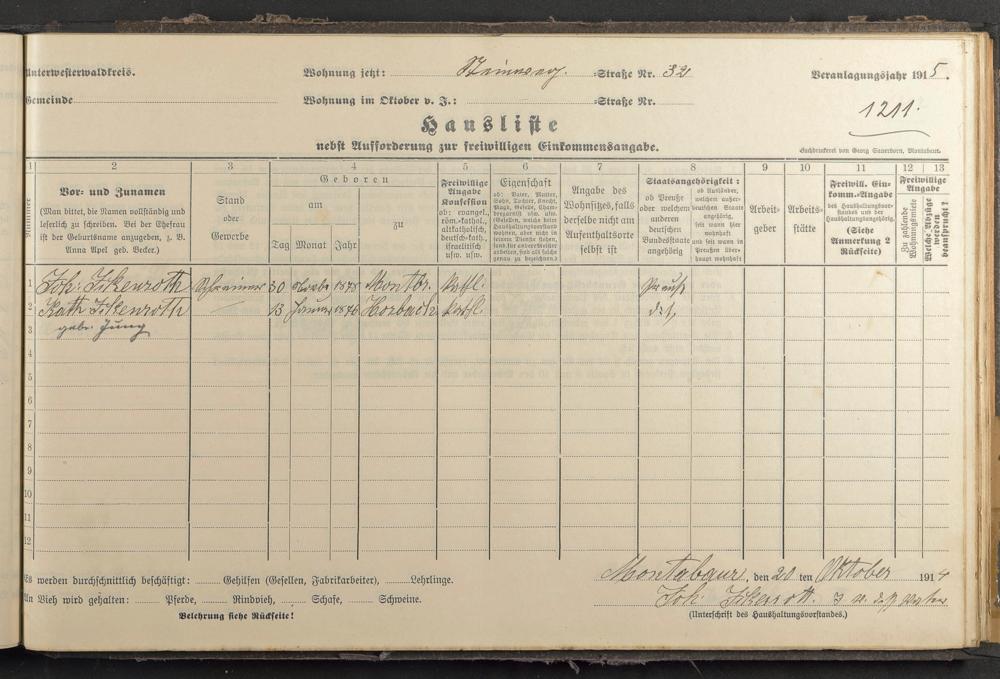 Unterwesterwaldkreis.
Wohnung jetzt: Steinweg. =Straße Nr. 32
Veranlagungsjahr 1915.
Gemeinde
Wohnung im Oktober v. J.: =Straße Nr.
1211.
Hausliste
nebst Aufforderung zur freiwilligen Einkommensangabe.
Buchdruckerei von Georg Sauerborn, Montabaur.
1 2 3 4 5 6 7 8 9 10 11 12 13
Nummer
Vor- und Zunamen
(Man bittet, die Namen vollständig und
leserlich zu schreiben. Bei der Ehefrau
ist der Geburtsname anzugeben, z. B.
Anna Apel geb. Becker.)
Stand
oder
Gewerbe
Geboren
am
zu
Tag Monat Jahr
Freiwillige
Angabe
Konfession
ob: evangel.,
röm.-kathol.,
altkatholisch,
deutsch-kath.,
israelitisch
usw. usw.
Eigenschaft
ob: Vater, Mutter,
Sohn, Tochter, Knecht,
Magd, Geselle, Cham-
bregarnist usw. usw.
Angabe des
Wohnsitzes, falls
derselbe nicht am
Aufenthaltsorte
selbst ist
Staatsangehörigkeit:
ob Preuße
oder welchem
anderen
deutschen
Bundesstaate
angehörig
ob Ausländer,
welchem außer-
deutschen Staate
angehörig,
seit wann hier
wohnhaft
und seit wann in
Preußen über-
haupt wohnhaft
Arbeit-
geber
Arbeits-
stätte
Freiwill. Ein-
komm.-Angabe
des Haushaltungsvor-
standes und der
Haushaltungsangehörig.
(Siehe
Anmerkung 2
Rückseite)
Freiwillige
Angabe
Zu zahlende
Wohnungsmiete
Welche Abzüge
werden
beansprucht?
1 Joh. Ickenroth Schreiner 30 1875 Montbr. Kathl. Preuß
2 Kath Ickenroth 13 Januar 1876 Horbach Kathl. dst,
3 geb. Jung
4
5
6
7
8
9
10
11
12
Es werden durchschnittlich beschäftigt: Gehilfen (Gesellen, Fabrikarbeiter), Lehrlinge.
An Vieh wird gehalten: Pferde, Rindvieh, Schafe, Schweine.
Belehrung siehe Rückseite!
Montabaur, den 20 ten Oktober 1914
Joh. Ickenroth.
(Unterschrift des Haushaltungsvorstandes.)